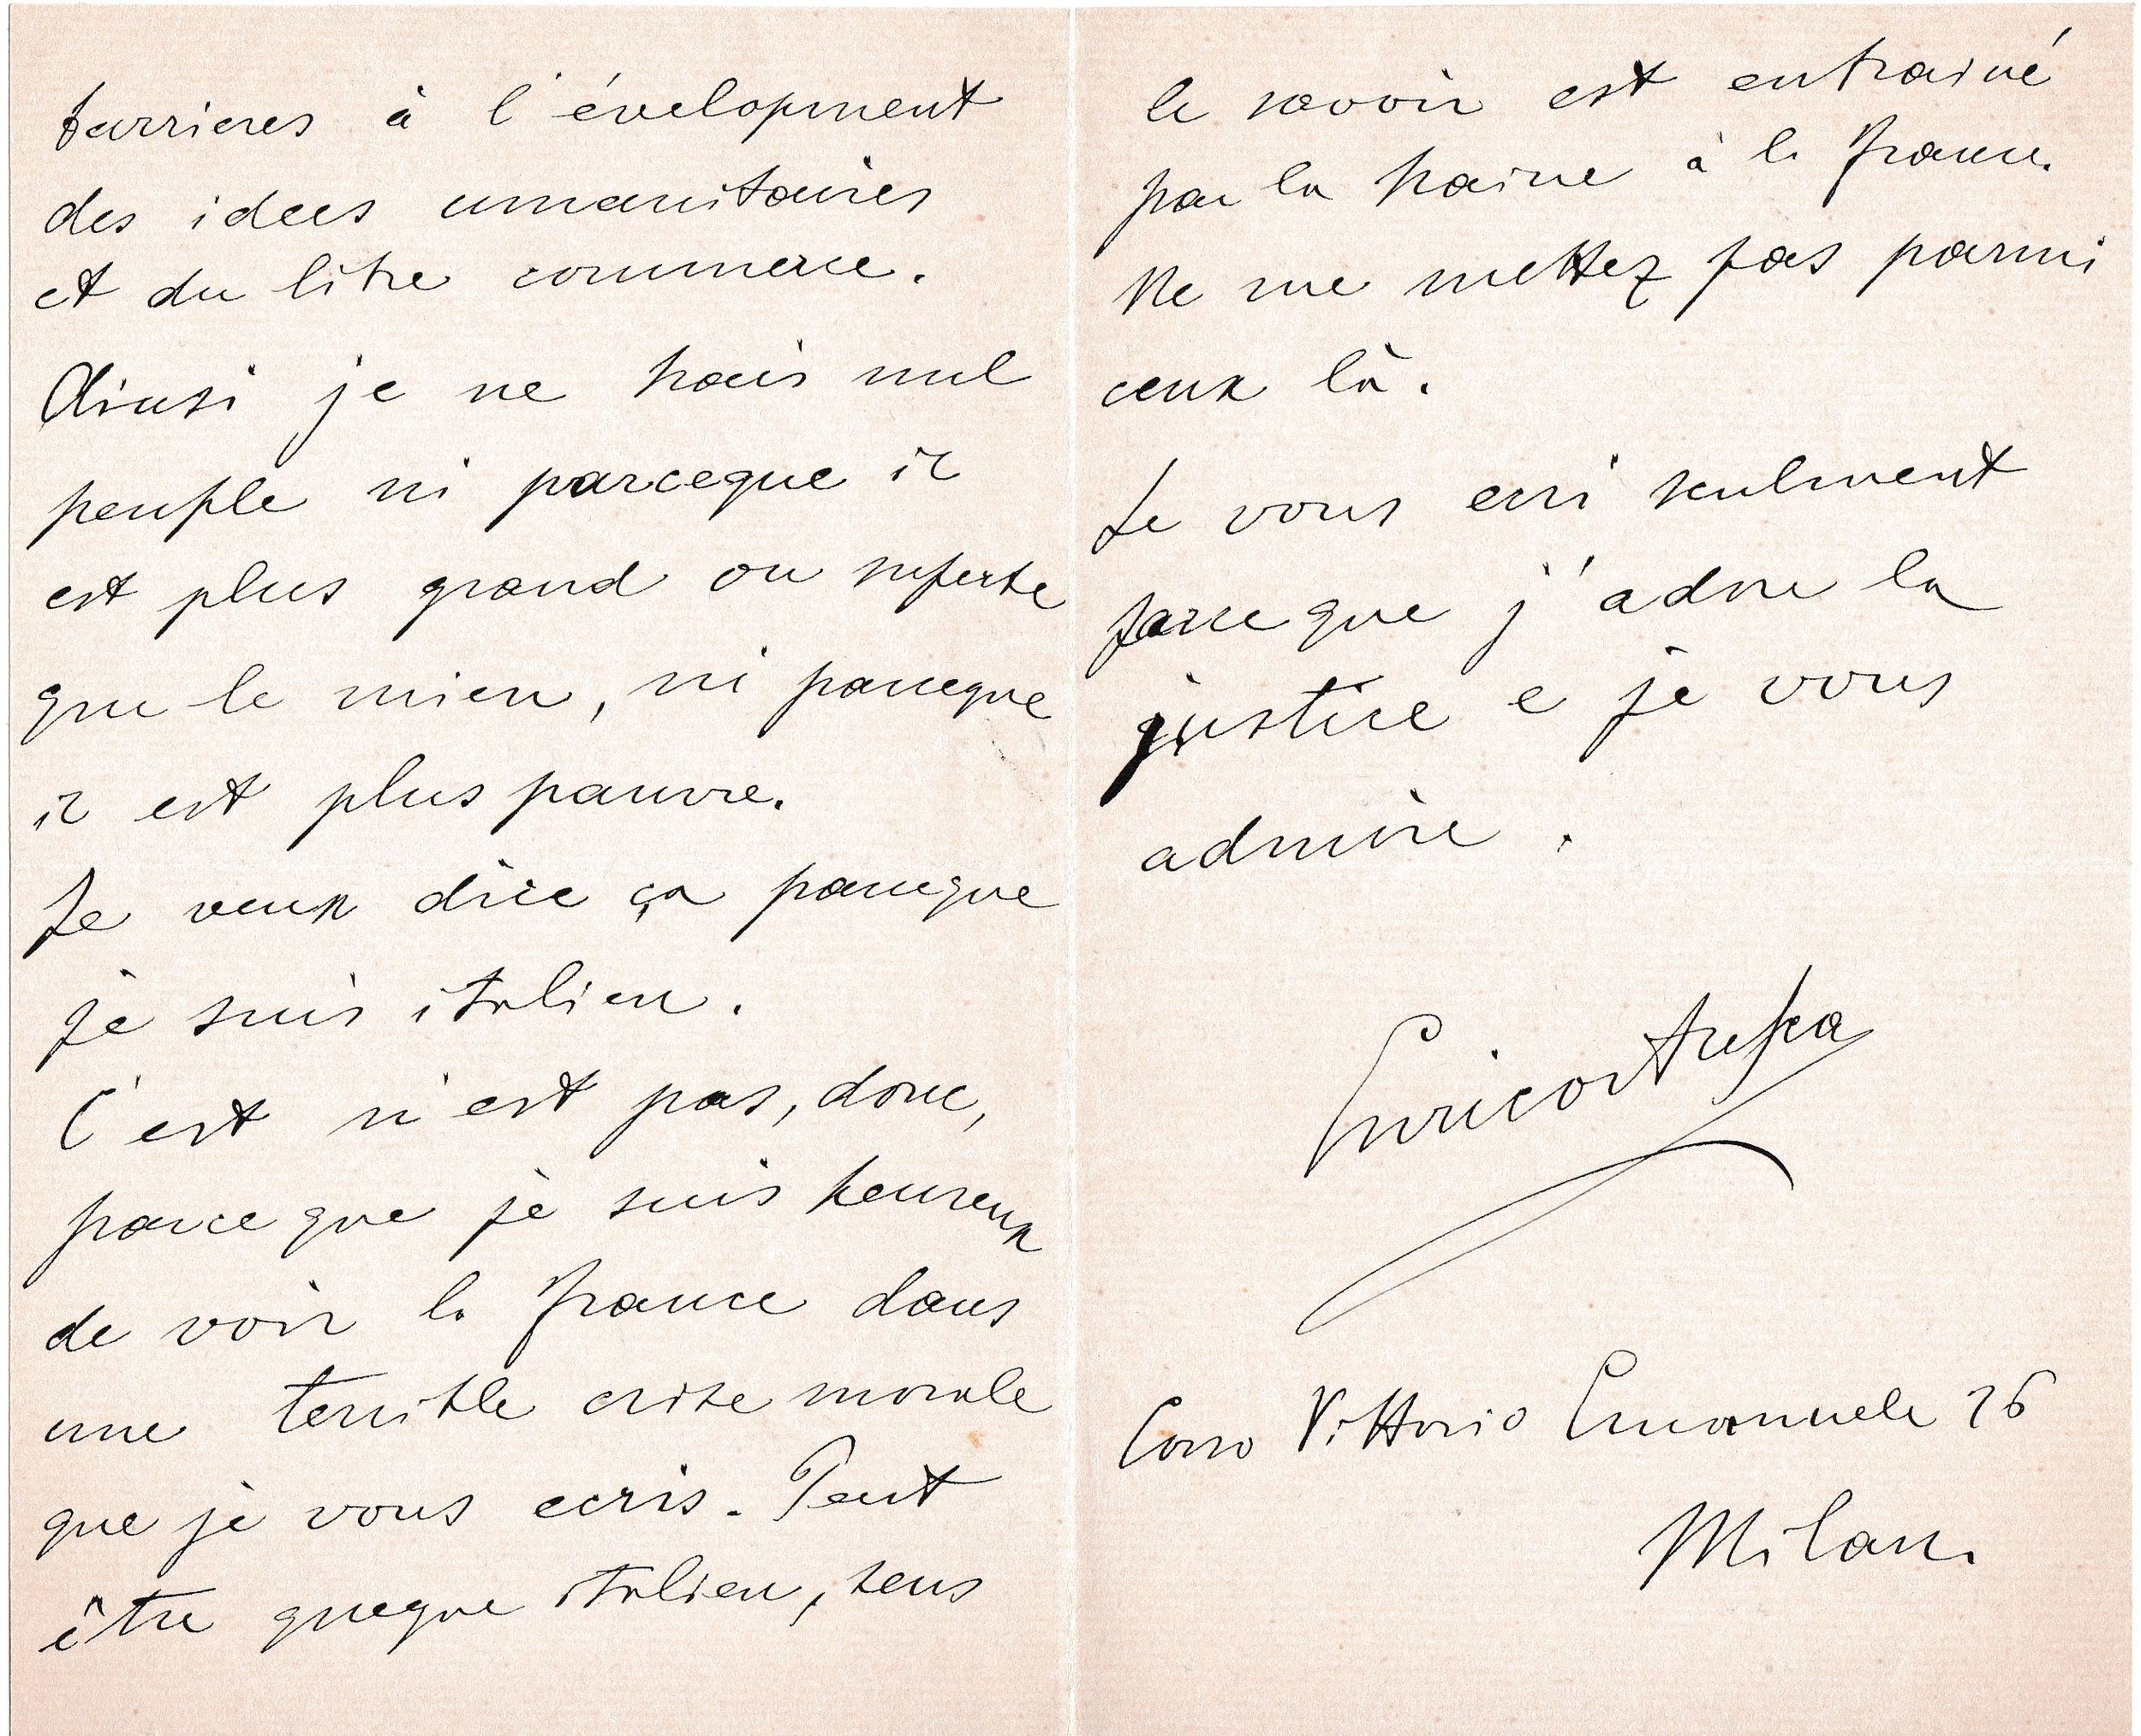 barrieres à l'évelopment
des idees umanitaires
et du libre commerce.
Ainsi je ne hais nul
peuple ni parceque il
est plus grand ou superbe
que le mien, ni parceque
il est plus pauvre.
Je veux dire ça parceque
je suis italien.
C'est n'est pas, donc,
parce que je suis heureux
de voir la France dans
une terrible crise morale
que je vous ecris. Peut
être queque italien, sens
le savoir est entrainé
par la haine à la France.
Ne me mettez pas parmi
ceux là.
Je vous ecri seulment
parce que j'adore la
justice e je vous
admire.
Enrico
Corso Vittorio Emanuele 26
Milan.